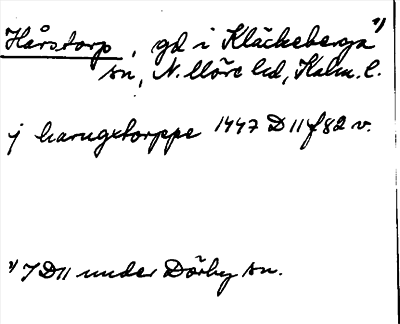 Hårstorp, gd i Kläckeberga 1)
sn, N. Möre hd, Kalm. l.
j harugxtorppe 1447 D 11 f 82 v.
1) I D 11 under Dörby sn.